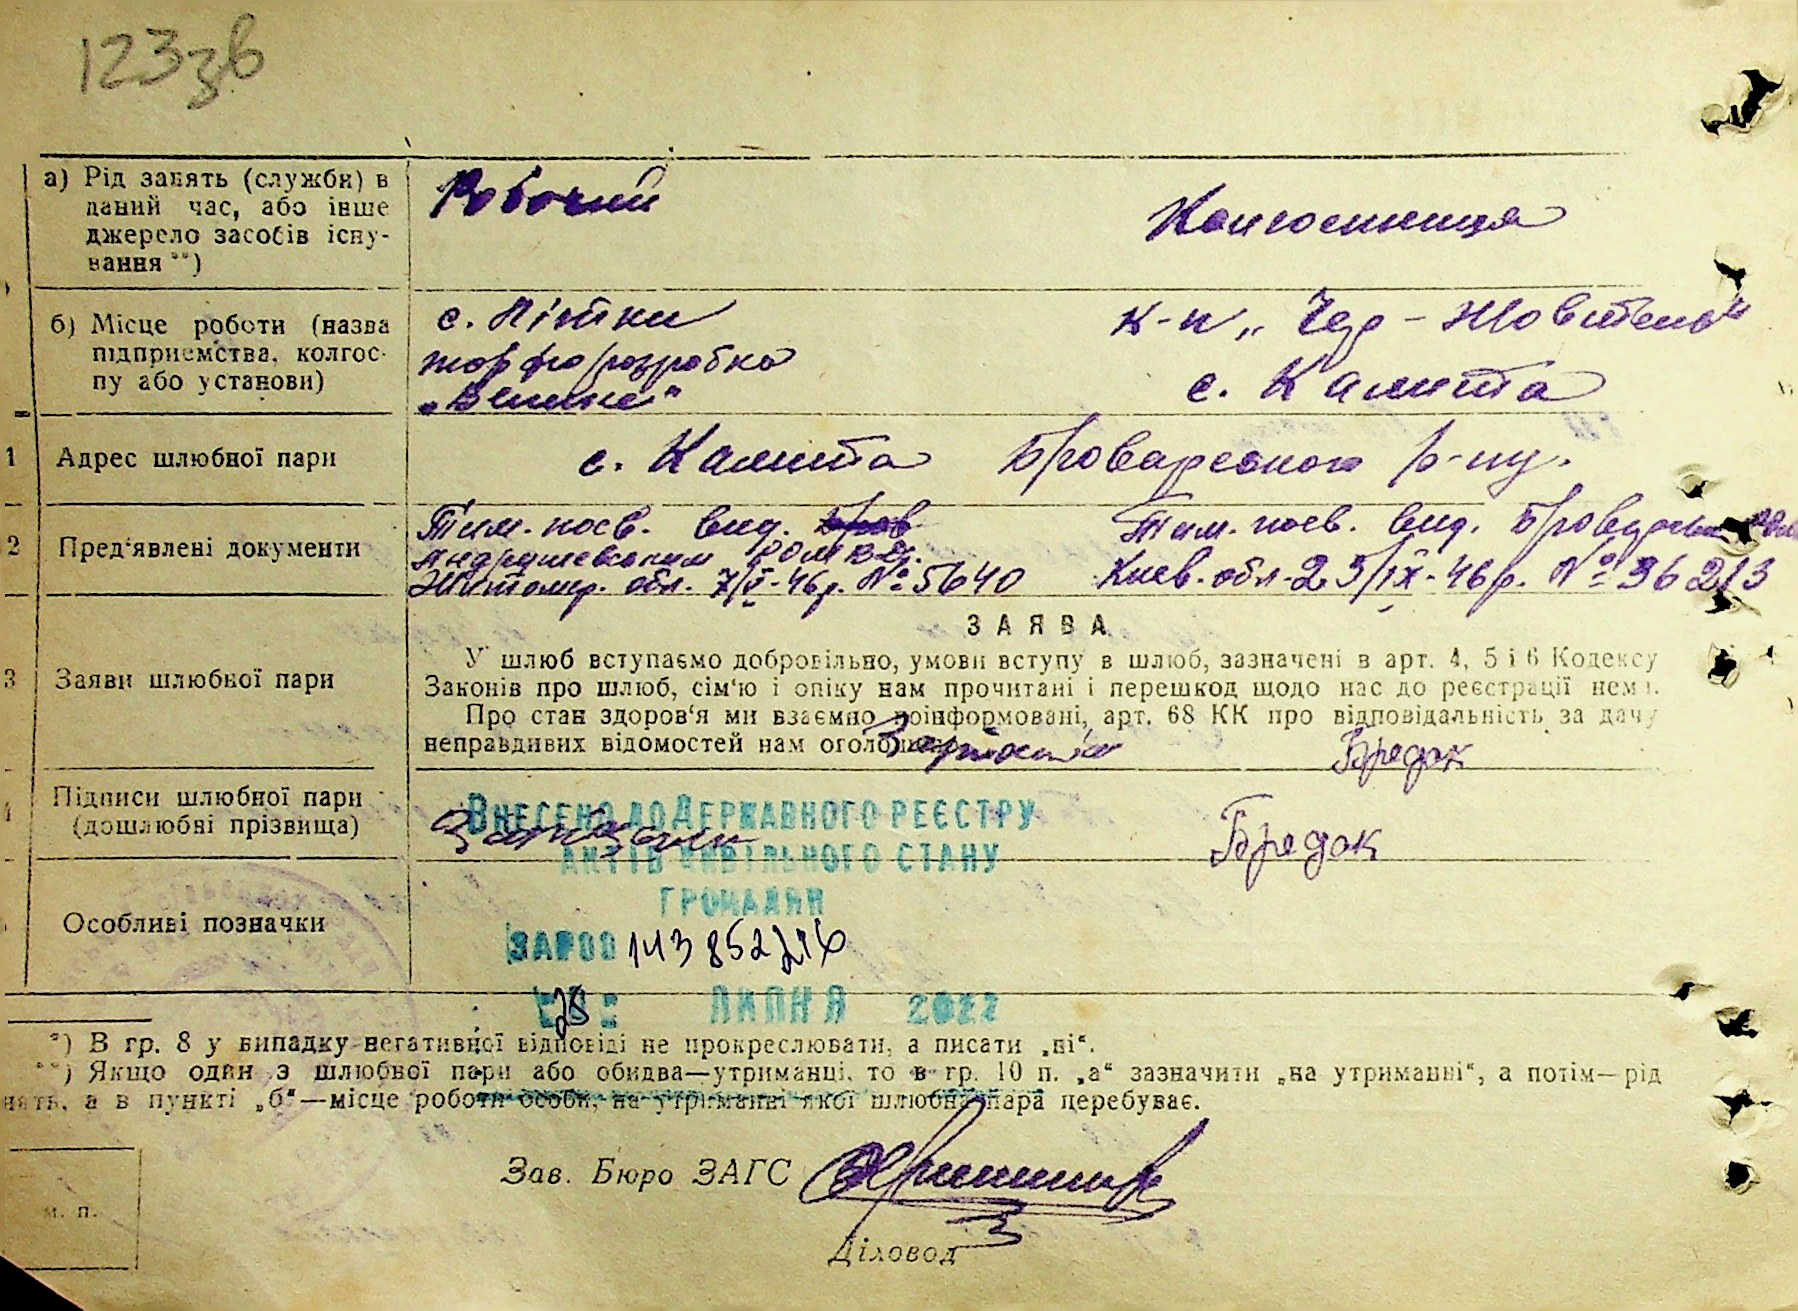 123зв
а) Рід занять (служби) в даний час, або інше джерело засобів існування **)
Робочий
Колгоспниця
б) Місце роботи (назва підприємства, колгоспу або установи)
с. Літки
торфорозробка
к-п „Чер-Жовтень"
с. Калита
1 Адрес шлюбної пари
с. Калита Броварського р-ну.
2 Пред'явлені документи
Тим. посв. вид.
Андрушевским РОМВД.
Житомир. обл. 7/V-46р. № 5640
Тим. посв. вид. Броварским
Киев. обл. 25/IX-46р. № 36213
ЗАЯВА
3 Заяви шлюбної пари
У шлюб вступаємо добровільно, умови вступу в шлюб, зазначені в арт. 4, 5 і 6 Кодексу
Законів про шлюб, сім'ю і опіку нам прочитані і перешкод щодо нас до реєстрації нема.
Про стан здоров'я ми взаємно поінформовані, арт. 68 КК про відповідальність за дачу
неправдивих відомостей нам оголошено.
Бредок
4 Підписи шлюбної пари
(дошлюбні прізвища)
Бредок
ВНЕСЕНО ДО ДЕРЖАВНОГО РЕЄСТРУ
АКТІВ ЦИВІЛЬНОГО СТАНУ
ГРОМАДЯН
Особливі позначки
28 ЛИПНЯ 2022
*) В гр. 8 у випадку негативної відповіді не прокреслювати, а писати „ні".
**) Якщо один з шлюбної пари або обидва—утриманці, то в гр. 10 п. „а" зазначити „на утриманні", а потім—рід
нять, а в пункті „б"—місце роботи особи, на утриманні якої шлюбна пара перебуває.
Зав. Бюро ЗАГС
м. п.
Діловод